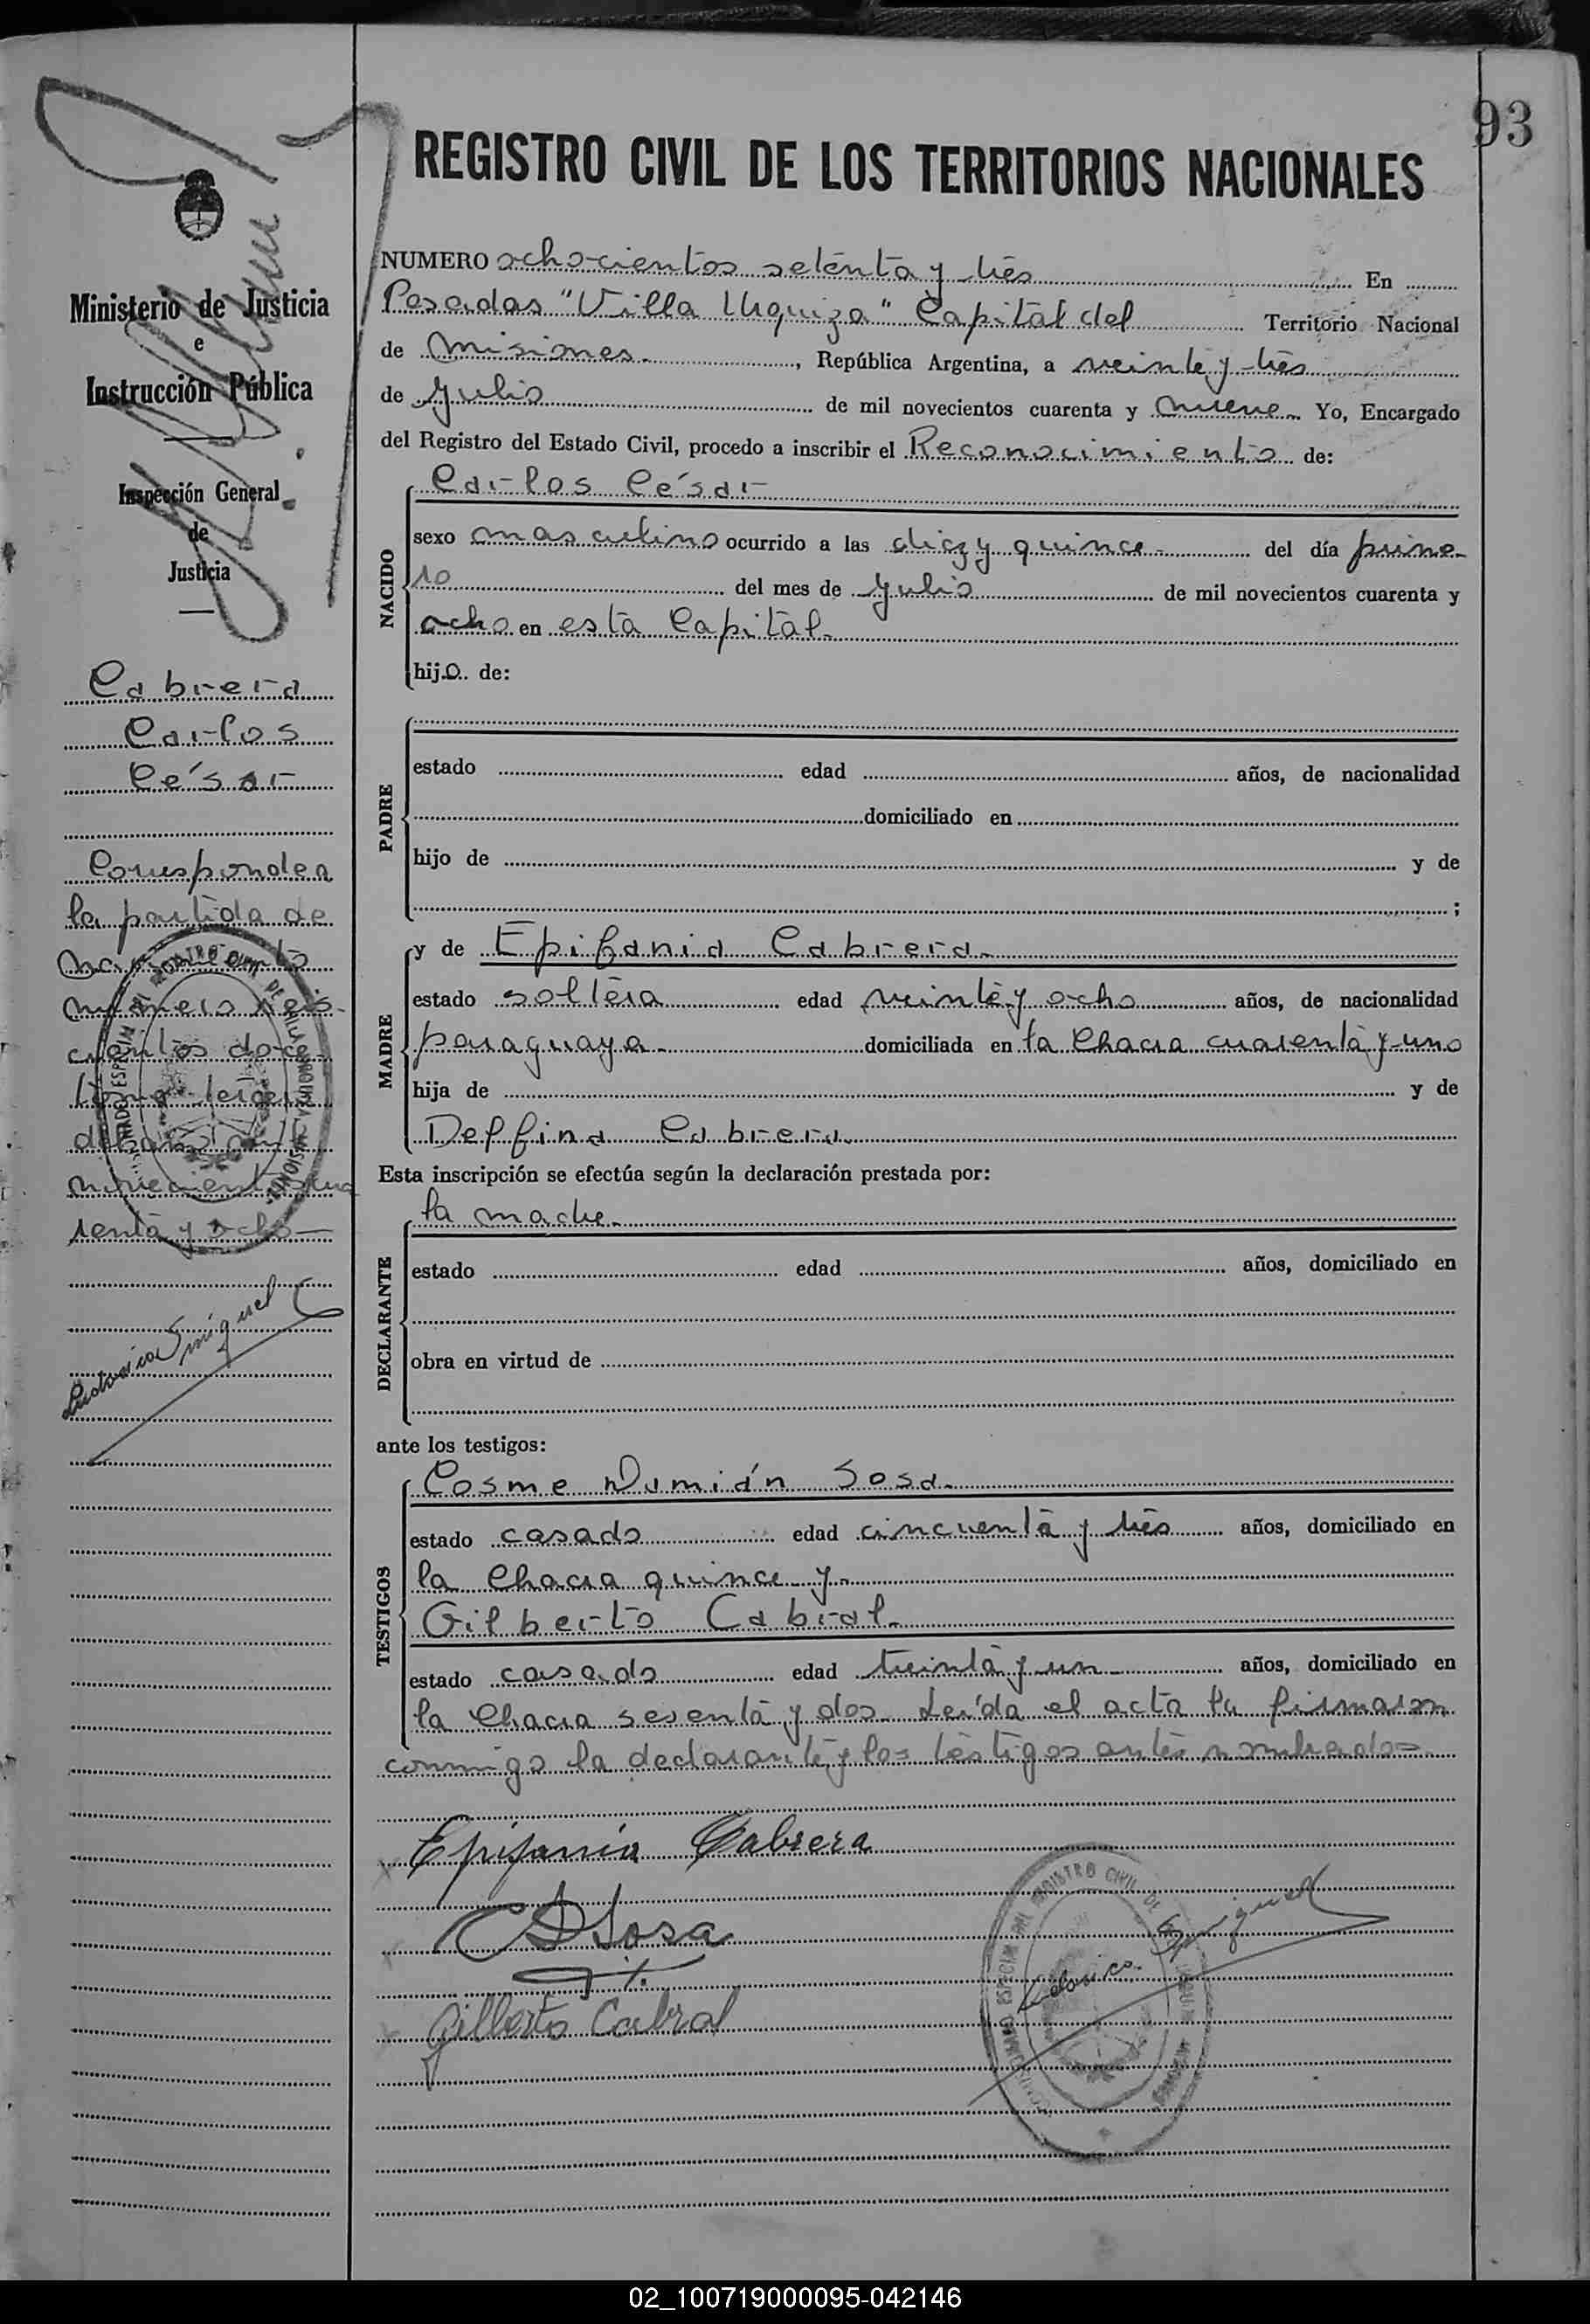 93
REGISTRO CIVIL DE LOS TERRITORIOS NACIONALES
Ministerio de Justicia
e
Instrucción Pública
Inspección General
de
Justicia
Cabrera
Carlos
César
Corresponde a
la partida de
nacimiento
número seis-
cientos doce
tomo
del año mil
novecientos cua
renta y ocho
NUMERO ochocientos setenta y tres En
Posadas "Villa Urquiza" Capital del Territorio Nacional
de Misiones, República Argentina, a veinte y tres
de Julio de mil novecientos cuarenta y nueve Yo, Encargado
del Registro del Estado Civil, procedo a inscribir el Reconocimiento de:
NACIDO
Carlos César
sexo masculino ocurrido a las diez y quince del día prime-
ro del mes de Julio de mil novecientos cuarenta y
ocho en esta Capital.
hijo de:
PADRE
estado edad años, de nacionalidad
domiciliado en
hijo de y de
;
MADRE
y de Epifania Cabrera.
estado soltera edad veinte y ocho años, de nacionalidad
paraguaya domiciliada en la Chacra cuarenta y uno
hija de y de
Delfina Cabrera.
Esta inscripción se efectúa según la declaración prestada por:
DECLARANTE
la madre.
estado edad años, domiciliado en
obra en virtud de
ante los testigos:
TESTIGOS
Cosme Damián Sosa.
estado casado edad cincuenta y tres años, domiciliado en
la Chacra quince y
Gilberto Cabral.
estado casado edad treinta y un años, domiciliado en
la Chacra sesenta y dos Leída el acta la firmaron
conmigo la declarante y los testigos antes nombrados
Epifania Cabrera
C D Sosa
Gilberto Cabral
02_100719000095-042146